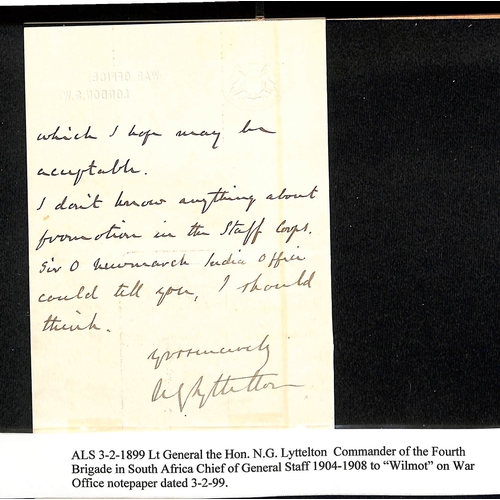 WAR OFFICE.
LONDON, S.W.
which I hope may be
acceptable.
I don't know anything about
promotion in the Staff Corps.
Sir O Newmarch India Office
could tell you, I should
think.
yrs sincerely
NG Lyttelton
ALS 3-2-1899 Lt General the Hon. N.G. Lyttelton Commander of the Fourth
Brigade in South Africa Chief of General Staff 1904-1908 to “Wilmot” on War
Office notepaper dated 3-2-99.